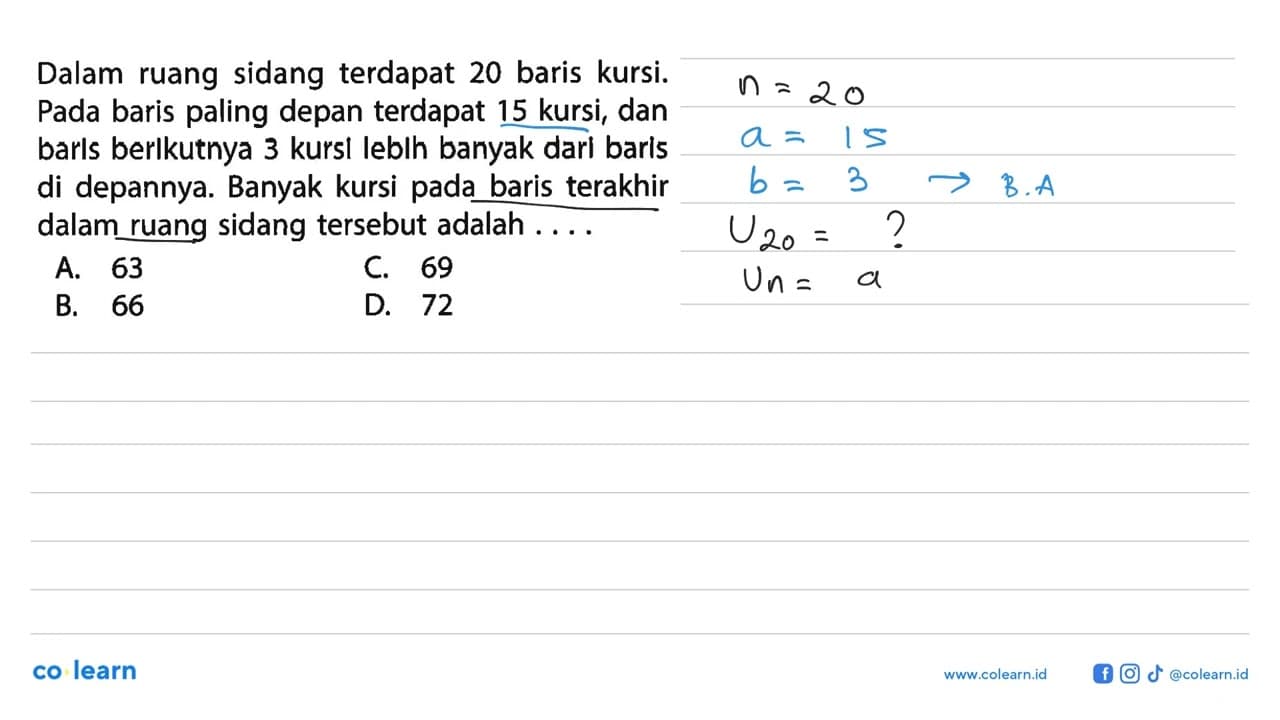 Dalam ruang sidang terdapat 20 baris kursi.
Pada baris paling depan terdapat 15 kursi, dan
baris berikutnya 3 kursi lebih banyak dari baris
di depannya. Banyak kursi pada baris terakhir
dalam ruang sidang tersebut adalah . . . .
A. 63 C. 69
B. 66 D. 72
n = 20
a = 15
b = 3 → B.A
U20 = ?
Un = a
co learn
www.colearn.id @colearn.id